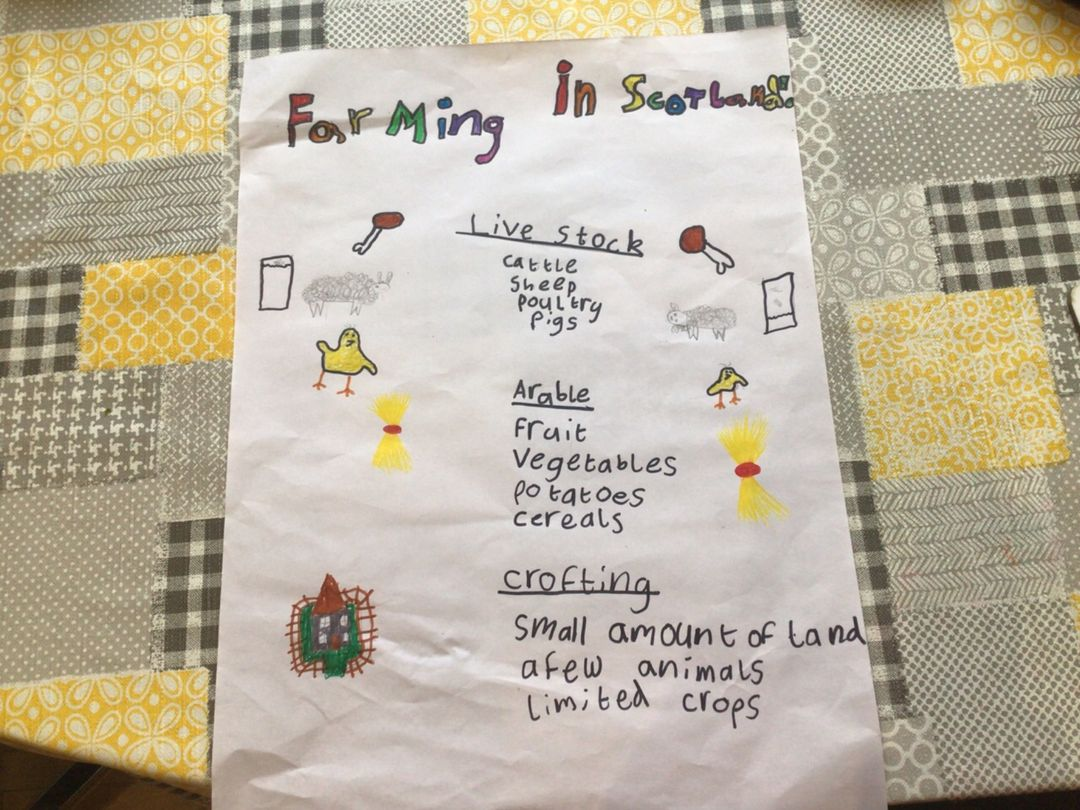 Farming in Scotland.
Live stock
cattle
Sheep
Poultry
Pigs
Arable
Fruit
Vegetables
Potatoes
cereals
crofting
Small amount of land
a few animals
Limited crops